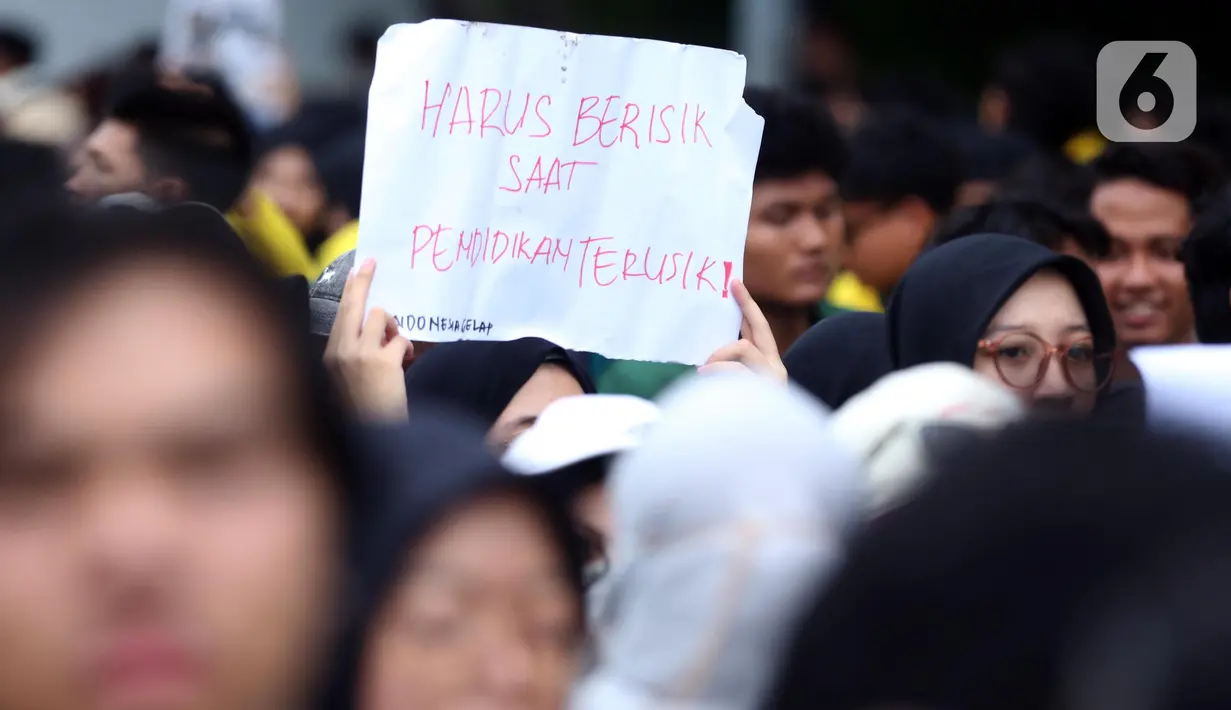 HARUS BERISIK
SAAT
PENDIDIKAN TERUSIK!
NDONESIAGELAP
6